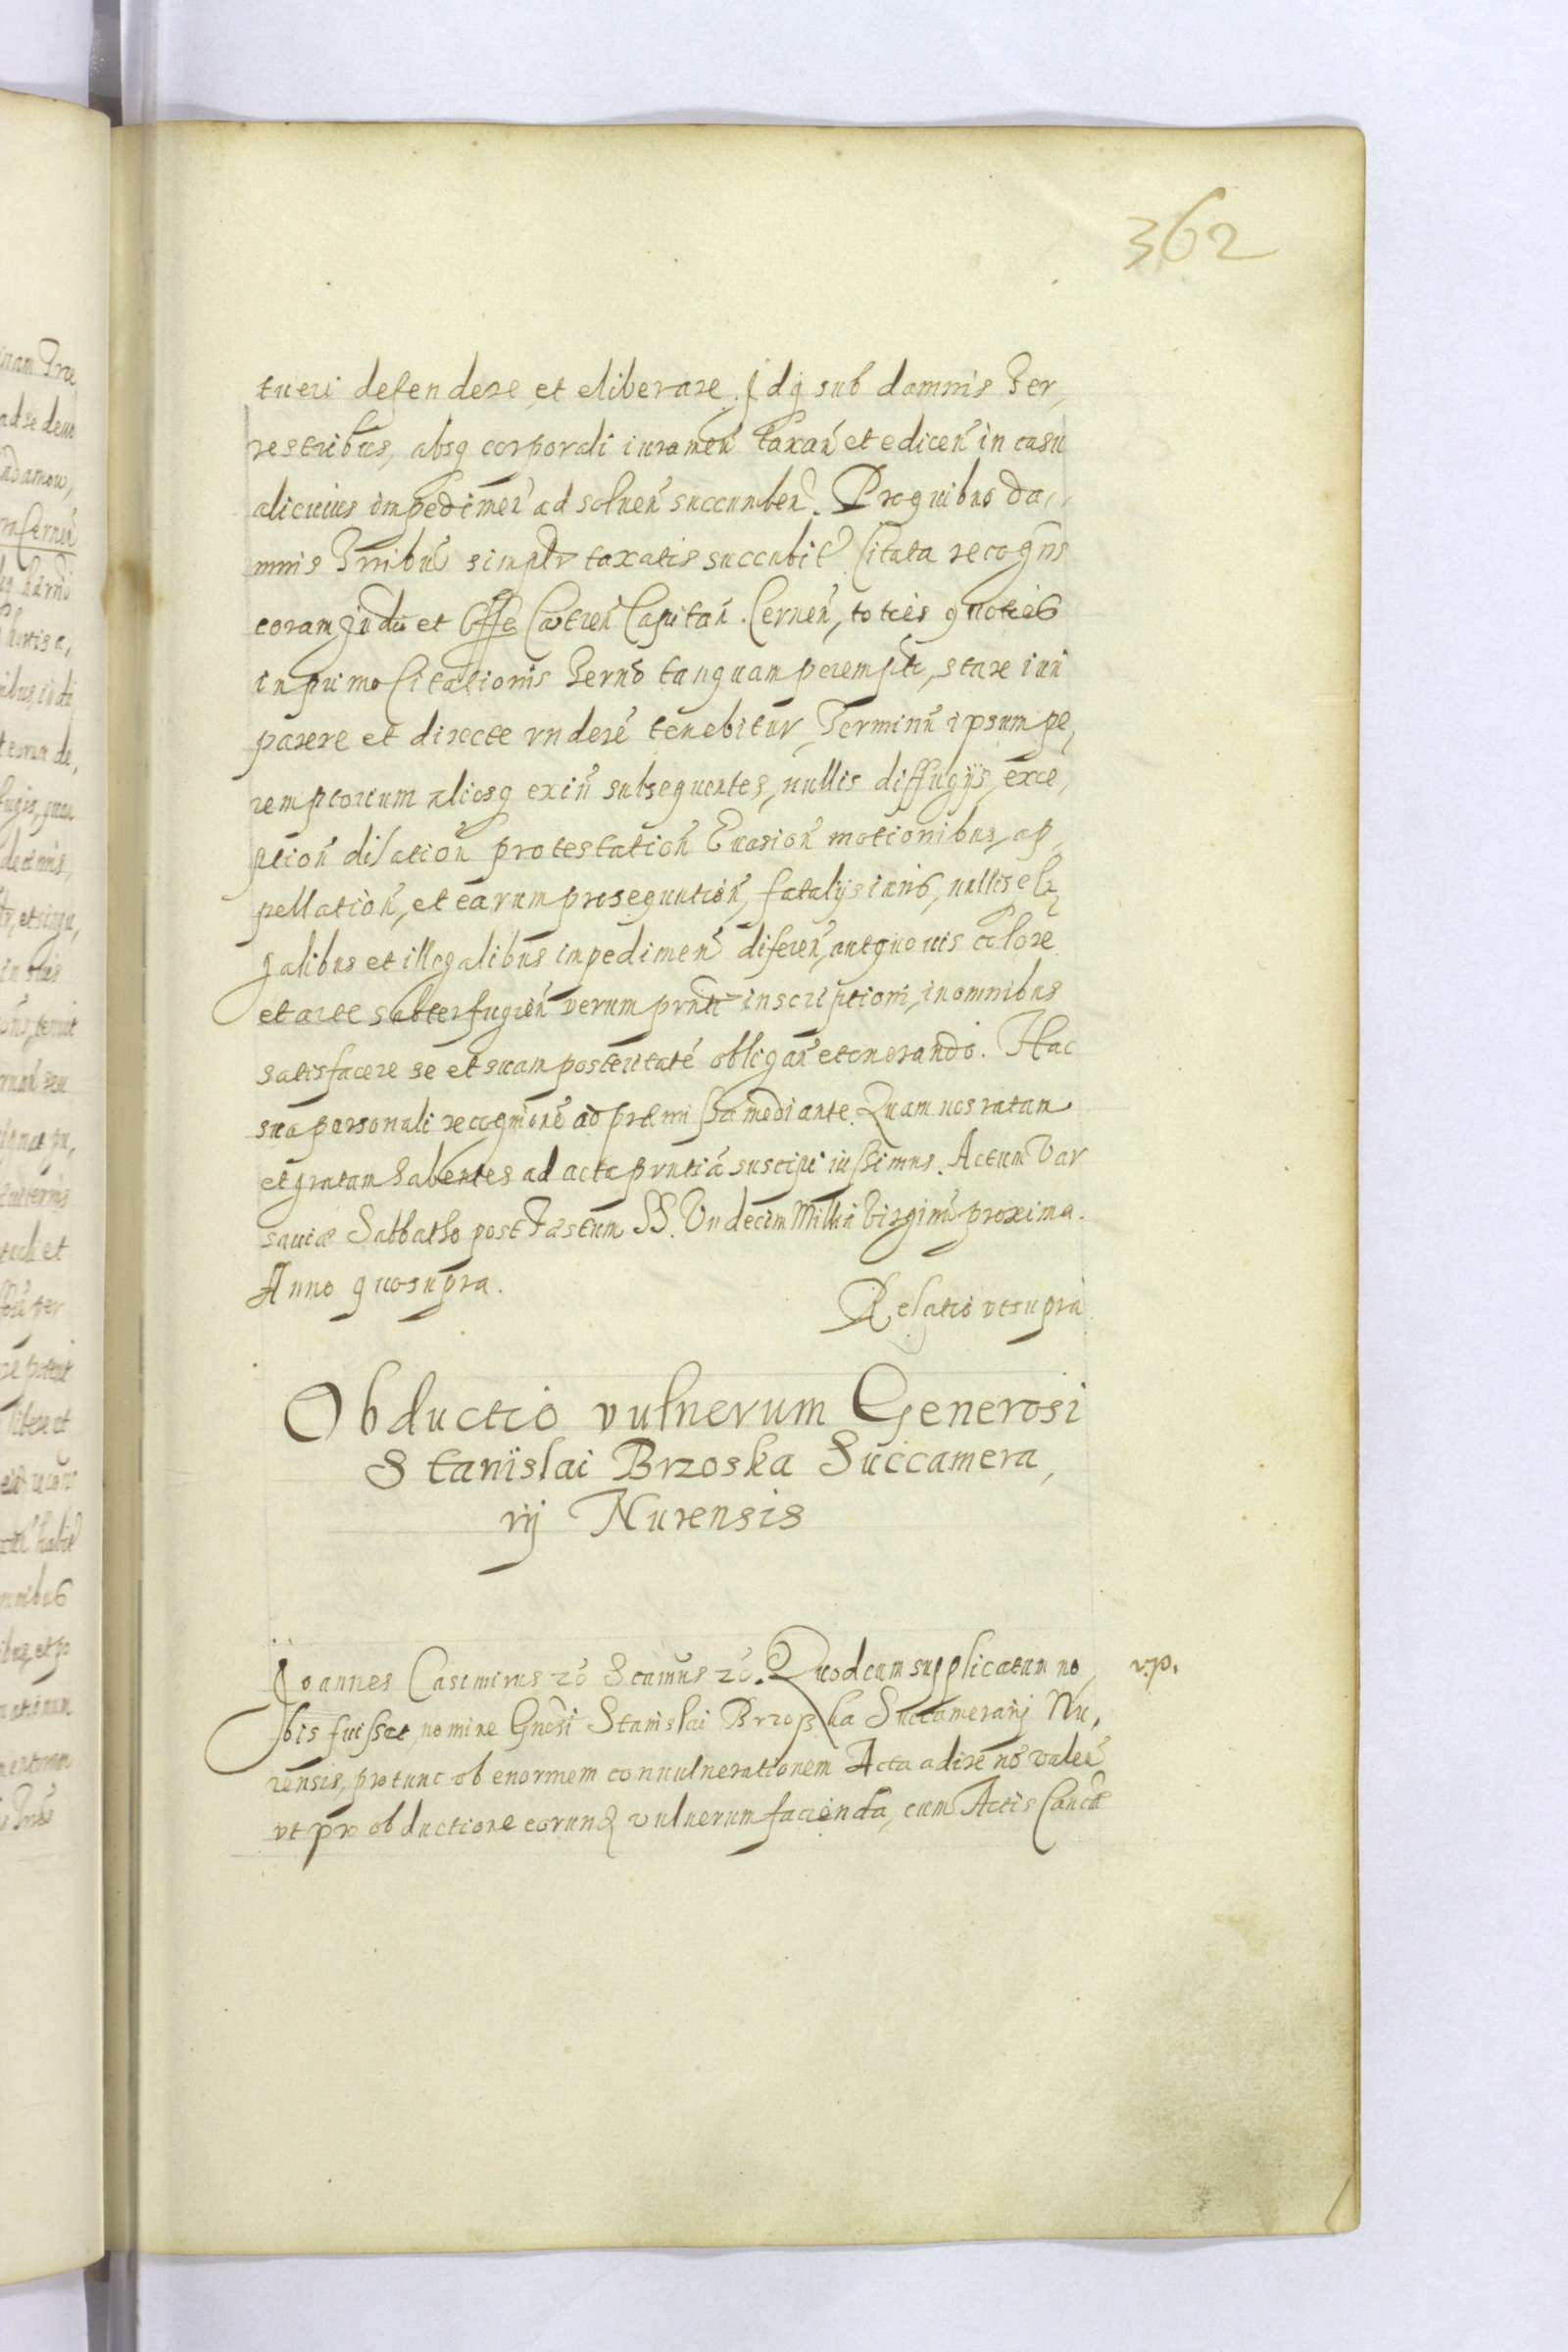 362
tueri defendere et eliberare. Idq sub damnis Ter,
restribus, absq corporali iuramen̄ taxan̄ et edicen̄ in casu
alicuius impedimen̄ ad soluen̄ succumben̄. Pro quibus da,
mnis Trribus simplr taxatis succubit Citata recogns
coram Judu et Offo Castren̄ Capitan̄. Cernen̄, toties quoties
in primo Citationis Terno tanquam peremptr, stare iuri
parere et directe rndere tenebitur, Terminū ipsum pe,
remptorium aliosq exin̄ subsequentes, nullis diffugijs, exce,
ption̄ dilation̄ protestation̄ Euasion̄ motionibus, ap,
pellation̄, et earum prosequution̄, fatalijs iuris, nullis
galibus et illegalibus impedimen̄ diferen̄, aut quouis colore
et arte subterfugien̄ verum prnti inscriptioni, in omnibus
satisfacere se et suam posteritaté obligan̄ et onerando. Hac
sua personali recognitione ad praemissa mediante. Quam nos ratam
et gratam habentes ad acta prntia suscipi iussimus. Actum Var
sauiæ Sabbatho post Festum SS. Vndecim Millia Virginū proxima.
Anno quo supra.
Relatio vt supra
Obductio vulnerum Generosi
Stanislai Brzoska Succamera,
rij Nurensis
Joannes Casimirus zc̄ Scamus zc̄. Quod cum supplicatum no,
v.p.
bis fuisset, nomine Gnosi Stanislai Brzoska Succamerarij Nu,
rensis, pro tunc ob enormem conuulnerationem Acta adire nō valen̄
vt pro obductione eorund vulnerum facienda, cum Actis Cancæ